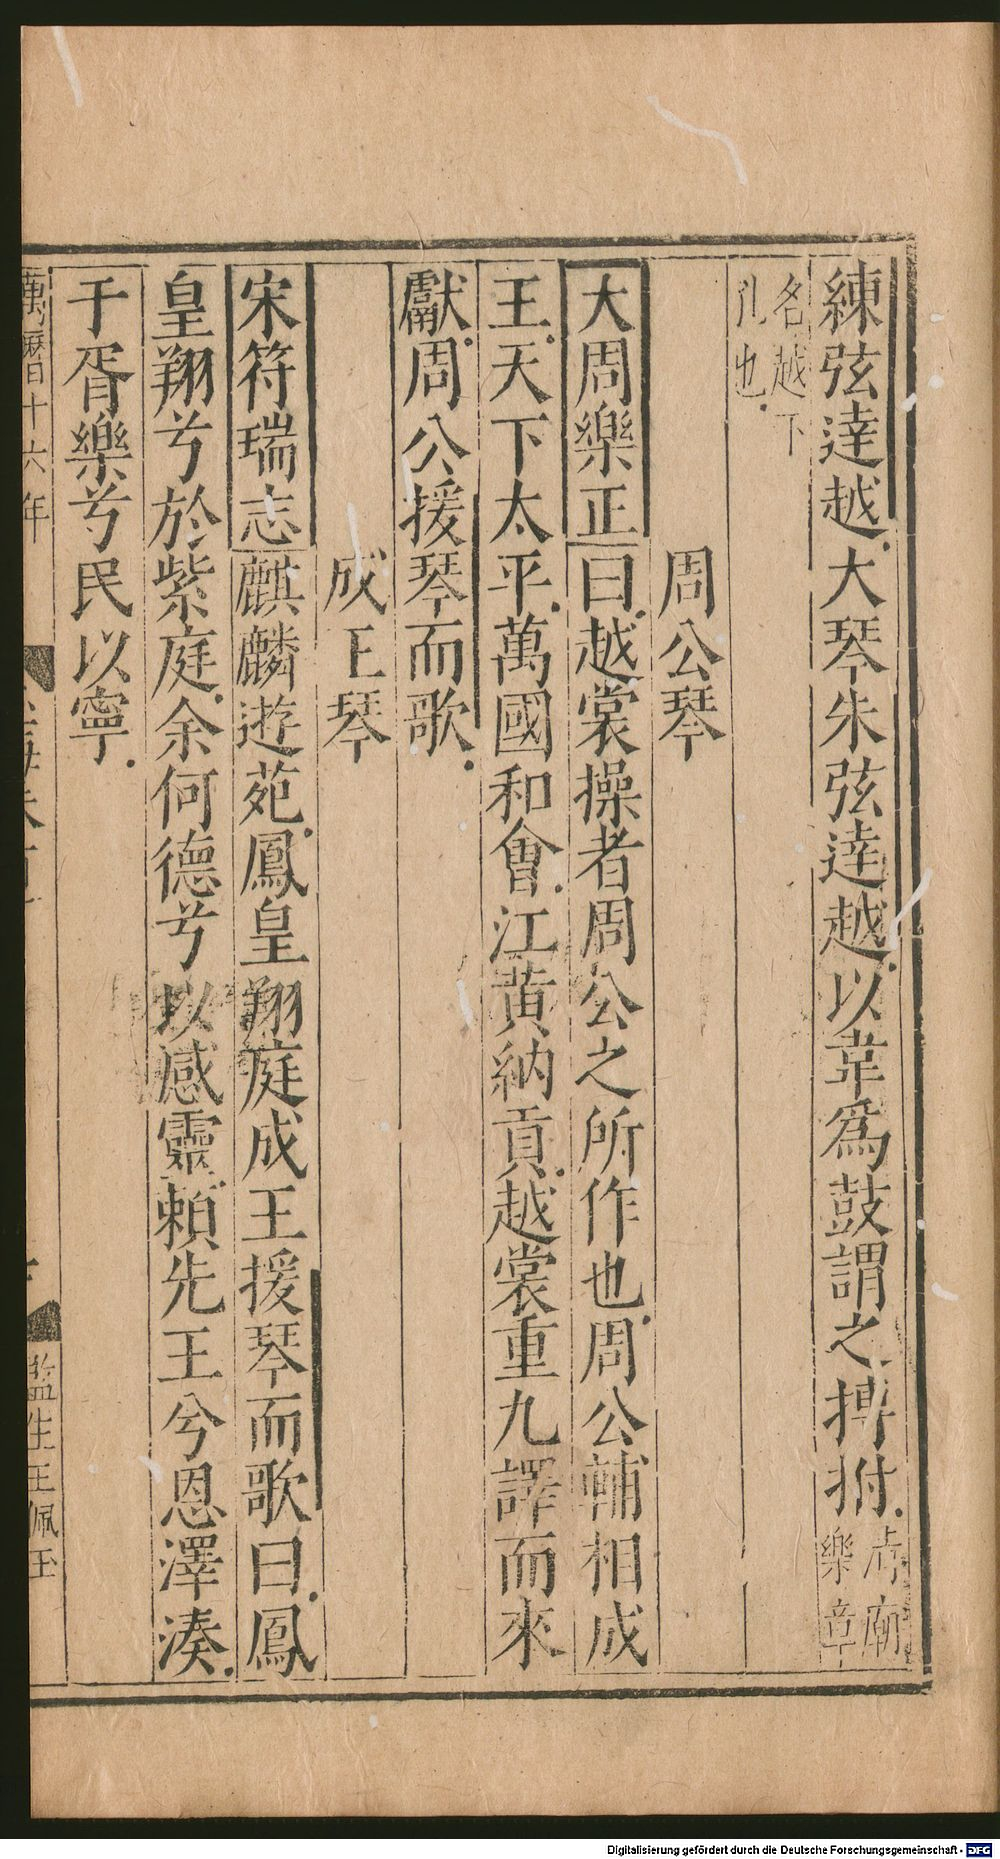 練弦達越大琴朱弦達越以韋爲鼓謂之搏拊清廟樂章
名越下孔也
周公琴
大周樂正曰越裳操者周公之所作也周公輔相成
王天下太平萬國和會江黃納貢越裳重九譯而來
獻周公援琴而歌
成王琴
宋符瑞志麒麟遊苑鳳皇翔庭成王援琴而歌曰鳳
皇翔兮於紫庭余何德兮以感靈賴先王兮恩澤湊
于胥樂兮民以寧
萬曆十六年
監生王佩玉
Digitalisierung gefördert durch die Deutsche Forschungsgemeinschaft - DFG